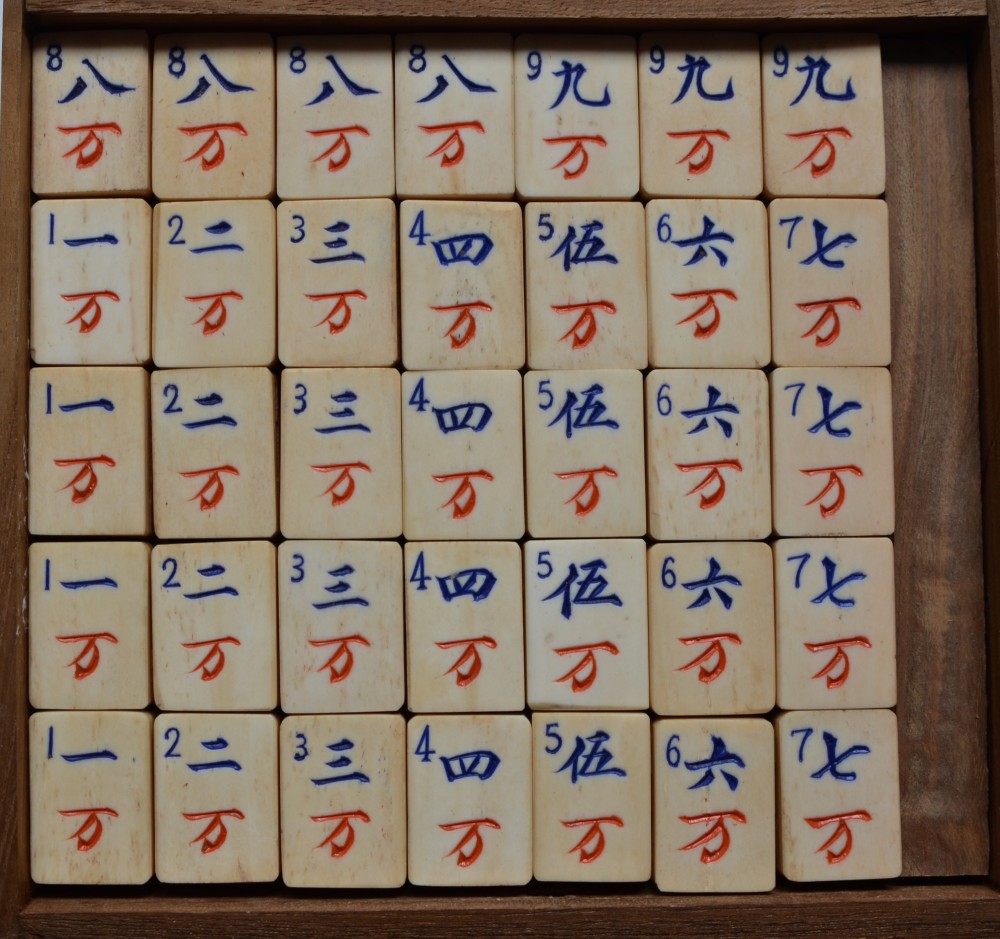 8 八 8 八 8 八 8 八 9 九 9 九 9 九
万 万 万 万 万 万 万
1 一 2 二 3 三 4 四 5 伍 6 六 7 七
万 万 万 万 万 万 万
1 一 2 二 3 三 4 四 5 伍 6 六 7 七
万 万 万 万 万 万 万
1 一 2 二 3 三 4 四 5 伍 6 六 7 七
万 万 万 万 万 万 万
1 一 2 二 3 三 4 四 5 伍 6 六 7 七
万 万 万 万 万 万 万